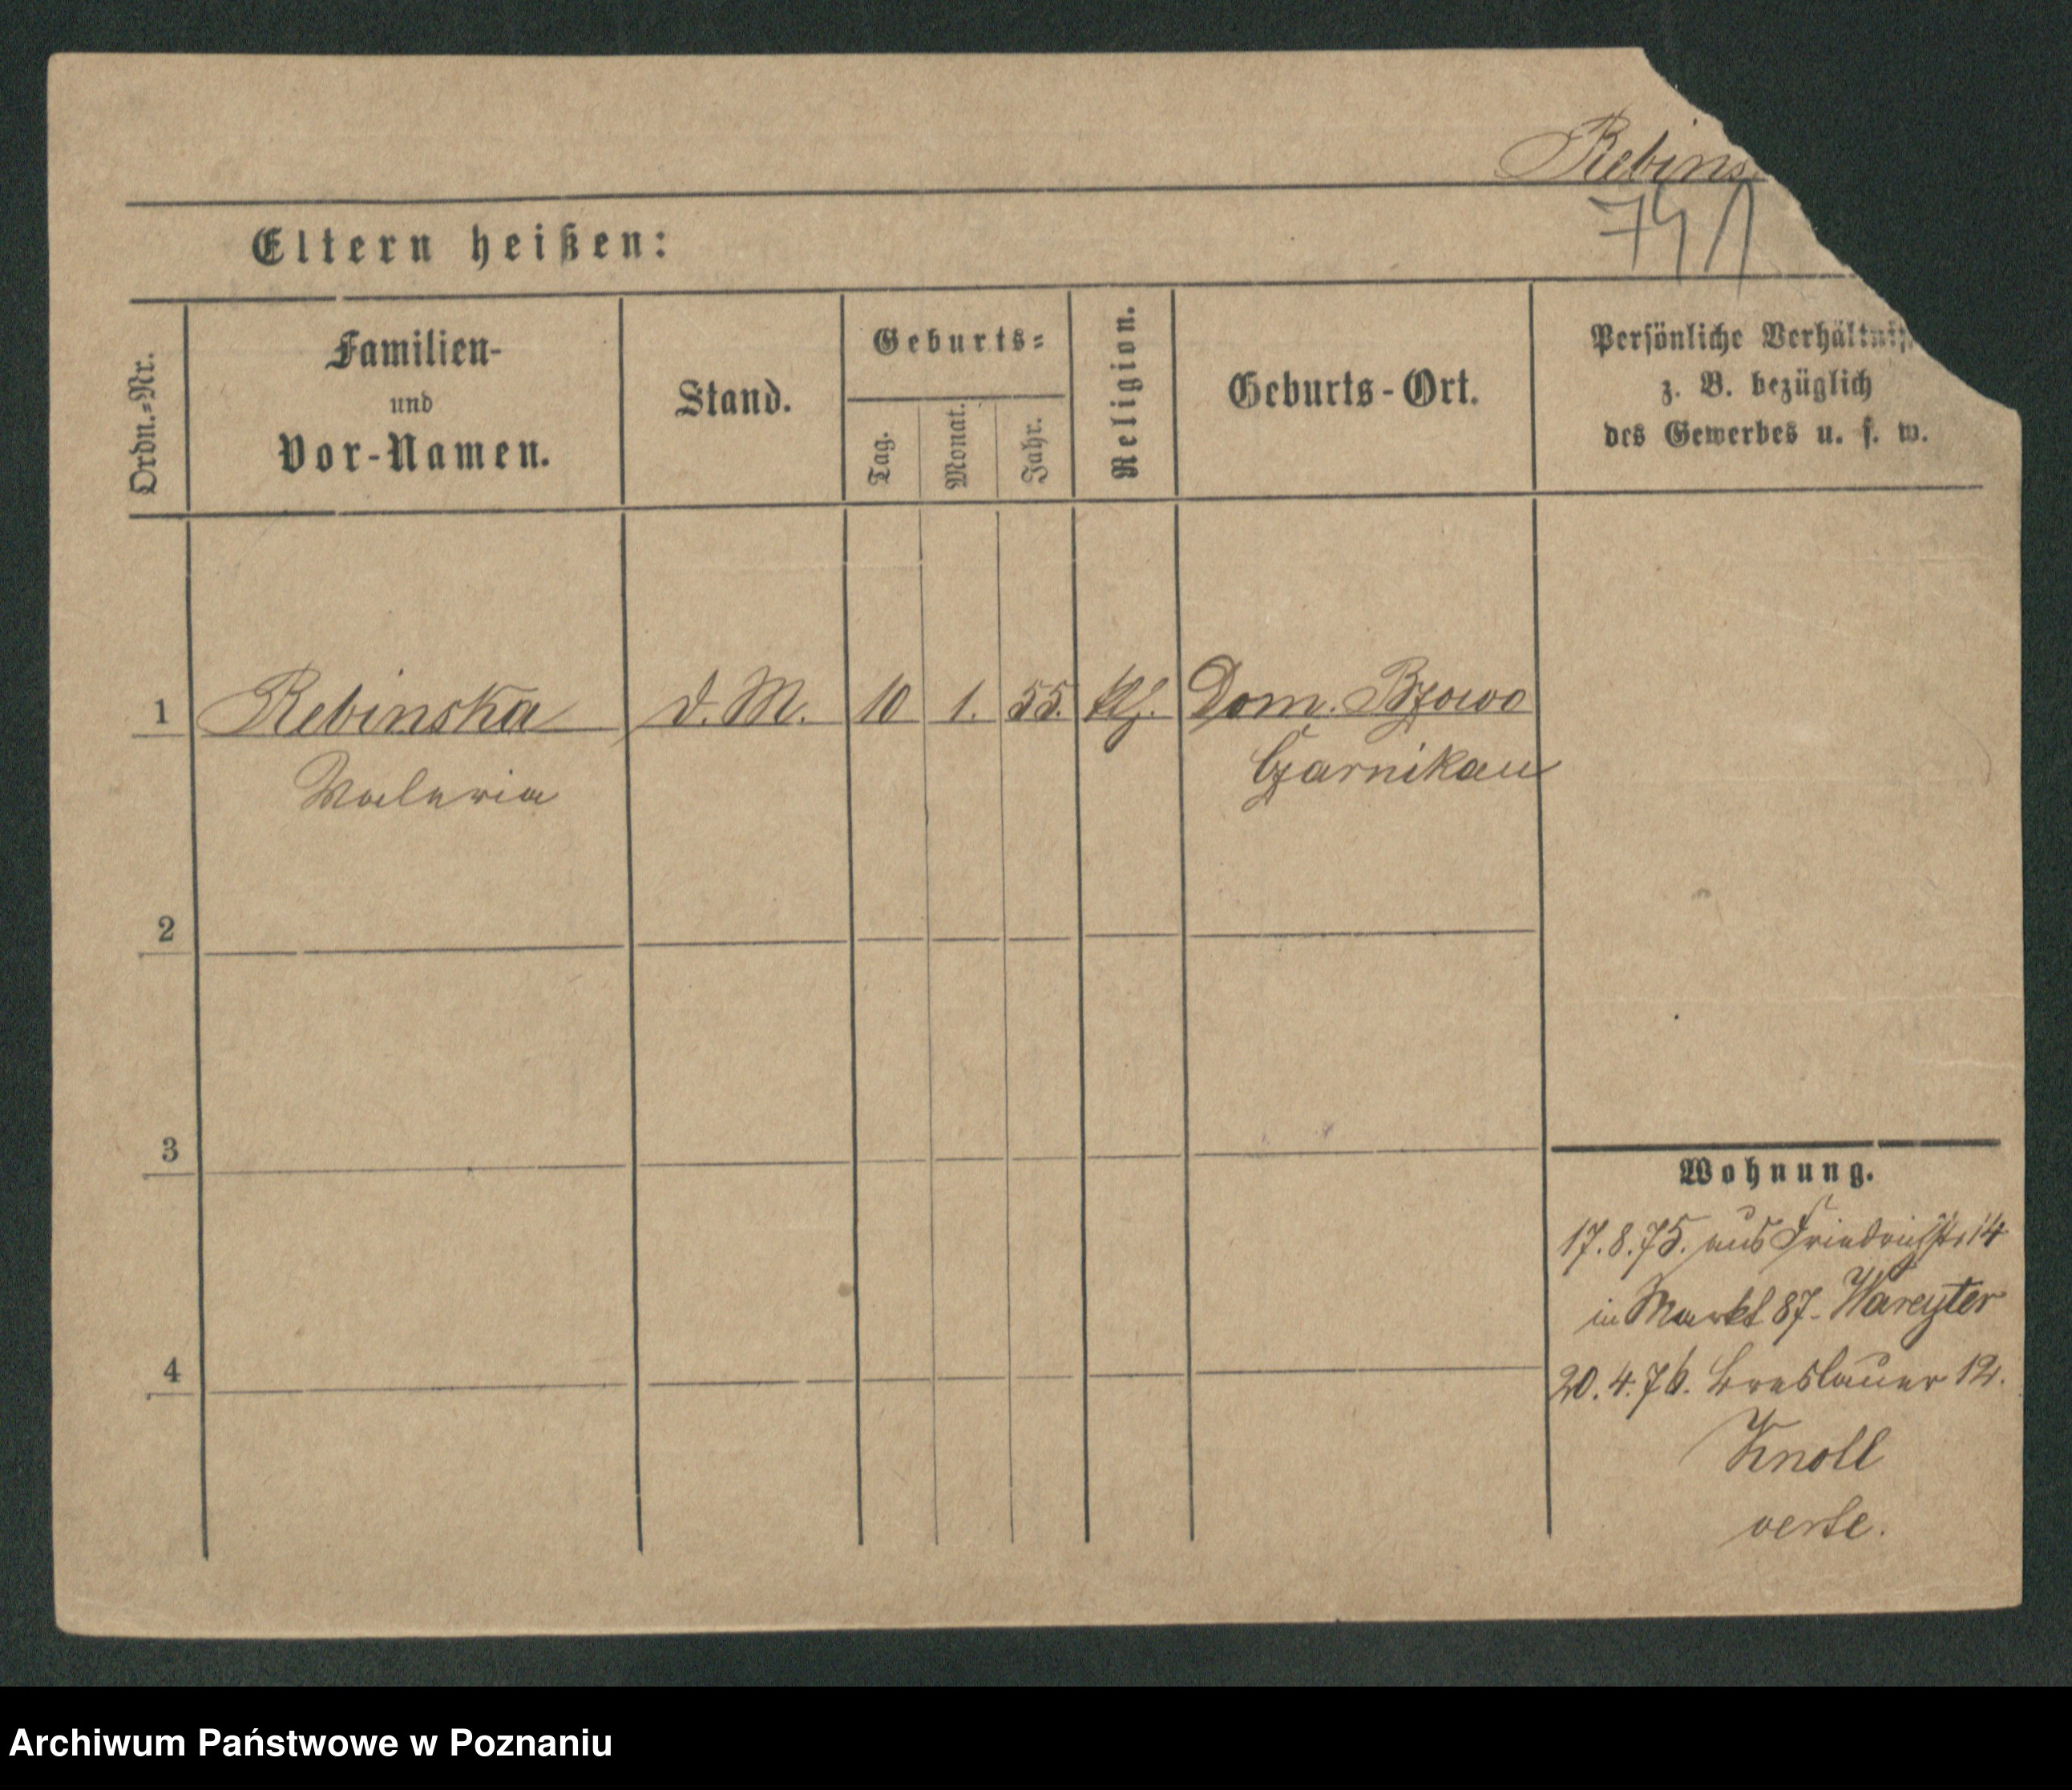 Rebins
Eltern heißen:
Ordn.-Nr.
Familien-
und
Vor-Namen.
Stand.
Geburts-
Tag.
Monat.
Jahr.
Religion.
Geburts-Ort.
Persönliche Verhältnis
z. B. bezüglich
des Gewerbes u. s. w.
1 Rebinska d. M. 10 1. 55. Dom. Bzowo
Valeria Czarnikau
2
3
4
Wohnung.
17.8.75. aus Friedrichstr. 14
in Markt 87.
20.4.76. Breslauer 12.
Knoll
verte.
Archiwum Państwowe w Poznaniu